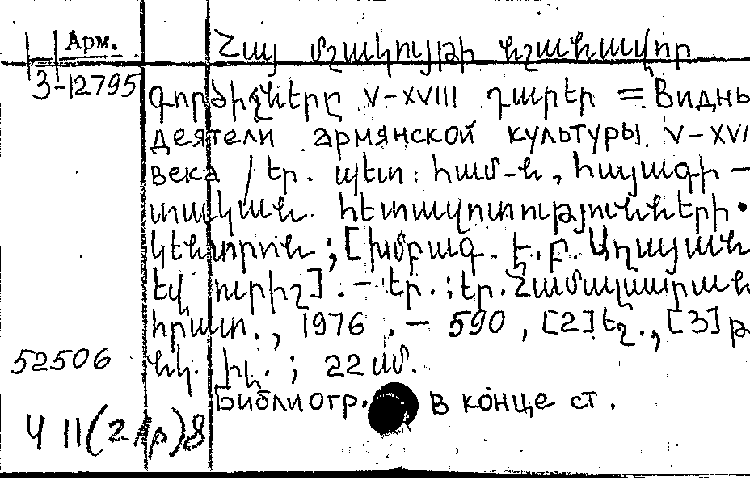 Арм.
Հայ մշակույթի նշանավոր
3-12795 գործիչները V-XVIII դարեր = Видны
деятели армянской культуры V-XVI
века / Եր. պետ. համ-ն, հայագի-
տական հետազոտությունների
կենտրոն ; [խմբագ. Է.Բ. Աղայան
եվ ուրիշ]. - Եր. : Եր. Համալսարան
հրատ., 1976. - 590, [2] էջ., [3] թ
52506 նկ. իլ. ; 22 սմ.
Библиогр. в конце ст.
Ч II(2Ар)8